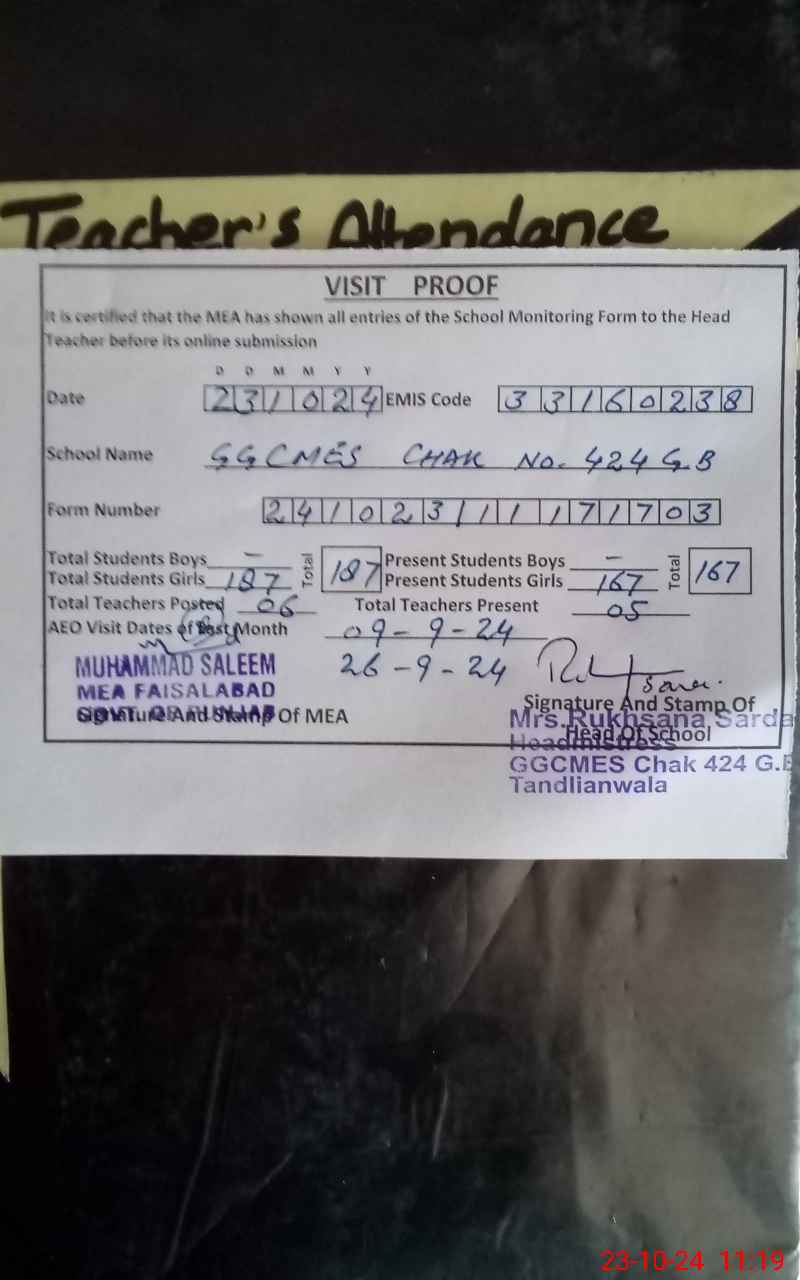 Teacher's Attendance
VISIT PROOF
It is certified that the MEA has shown all entries of the School Monitoring Form to the Head
Teacher before its online submission
D D M M Y Y
Date 231024 EMIS Code 33160238
School Name GGCMES CHAK No. 424 G.B
Form Number 241023111171703
Total Students Boys - Total 187 Present Students Boys - Total 167
Total Students Girls 187 Present Students Girls 167
Total Teachers Posted 06 Total Teachers Present 05
AEO Visit Dates of Last Month 09-9-24
26-9-24
MUHAMMAD SALEEM
MEA FAISALABAD
GOVT. OF PUNJAB
Signature And Stamp Of MEA
Signature And Stamp Of
Head Of School
Mrs. Rukhsana Sarda
Headmistress
GGCMES Chak 424 G.B
Tandlianwala
23-10-24 11:19